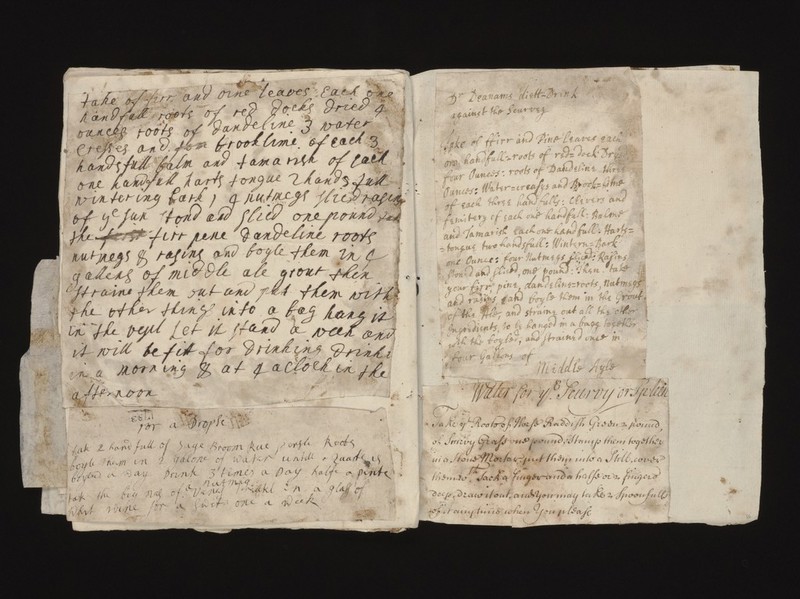 take of firr and pine leaves each one
handfull roots of red docks dried 4
ounces roots of dandeline 3 water
Cresses and brooklime of each 3
handsfull balm and tamarish of each
one handfull harts tongue 2 hands full
wintering bark 1 4 nutmegs slied rasins
of ye sun stond and slied one pound
the firr pene dandeline roots
nutmegs & rasins and boyle them in
gallens of middle ale grout then
strains them out and put them with
the other things into a bag hang it
in the vesil let it stand a week and
it will be fit for drinking drinke
in a morning & at 4 aclock in the
afternoon
for a Dropse
tak 2 handfull of Sage Broom Rue persle Roots
boyle them in galone of water untill a quarte is
boyled a Day Drink 3 times a Day half a pinte
tak the big nes of a Nutmeg
of Venes in a glas of
whit wine for a gust one a week
Dr Dennams Diett=Drink
against the Scurvy
Take of ffirr and Pine Leaves each
one handfull: roots of red=dock
four Ounces: roots of Dandeline three
Ounces: Water=creases and Brook=lime
of each three handfulls: Clevers and
fumitery of each one handfull: Balme
and Tamarish Each one handfull: Harts=
=tongue two handfull: Winters=Bark
one Ounce: four Nutmegs sliced: Rasins
stoned and sliced, one pound: Then take
your firr, pine, dandeline=roots, Nutmegs
and rasins, and boyle them in the Grout
of the Ale, and straine out all the other
Ingredients, to be hanged in a bagg
with the boyled, and strained out in
four Gallons of
Middle Ayle
Water for ye Scurvy or Spleen
Take ye Roots of Horse Raddish Green 2 pound,
of Scurvy Grass one pound, Stamp them together
in a Stone Morter, put them into a Still, cover
them Sack a finger and a half or 2 fingers
deep, draw it out, and you may take 2 Spoonfull
of it any time when you please